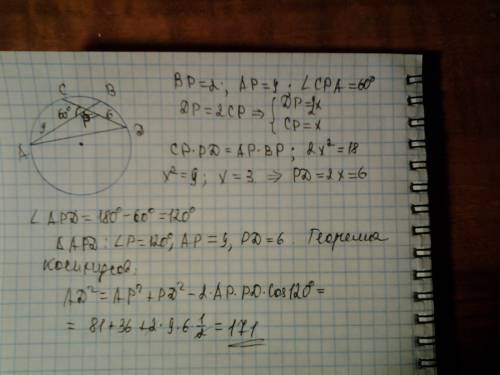 C B
BP=2; AP=9; ∠CPA=60°
60° 6
DP=2CP ⇒ { DP=2x
CP=x
P
9
A
CP·PD=AP·BP; 2x²=18
x²=9; x=3 ⇒ PD=2x=6
∠APD=180°-60°=120°
ΔAPD: ∠P=120°, AP=9, PD=6. Теорема
косинусов:
AD²=AP²+PD²-2·AP·PD·cos120°=
=81+36+2·9·6·1/2=171